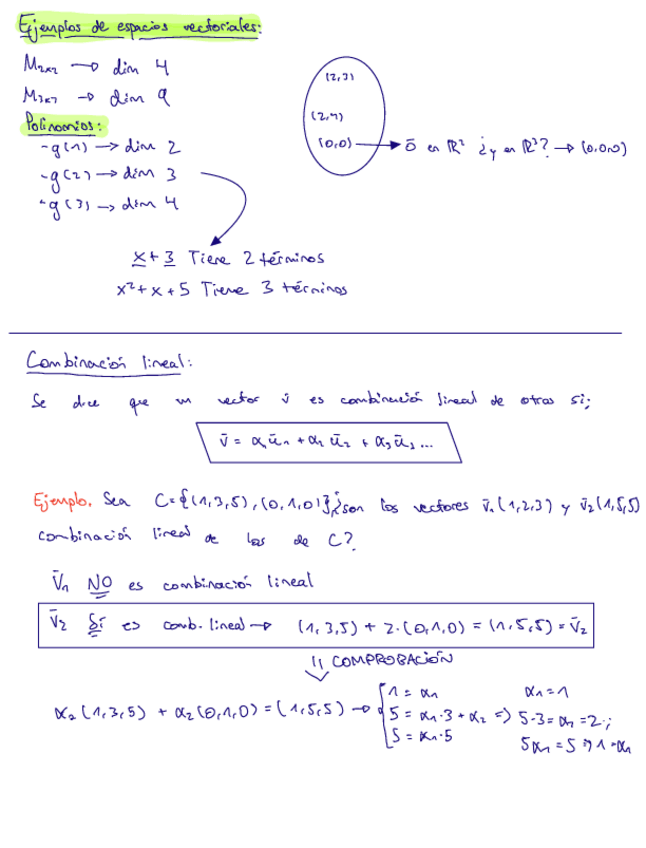 Ejemplos de espacios vectoriales:
M₂ₓ₂ → dim 4
M₃ₓ₃ → dim 9
Polinomios:
- g(1) → dim 2
- g(2) → dim 3
- g(3) → dim 4
(2,3)
(2,4)
(0,0) → ō en ℝ² ¿y en ℝ³? → (0,0,0)
x + 3 Tiene 2 términos
x² + x + 5 Tiene 3 términos
Combinación lineal:
Se dice que un vector v̄ es combinación lineal de otros si;
v̄ = α₁ū₁ + α₂ū₂ + α₃ū₃ ...
Ejemplo. Sea C={(1,3,5),(0,1,0)} ¿son los vectores v̄₁(1,2,3) y v̄₂(1,5,5)
combinación lineal de los de C?
v̄₁ NO es combinación lineal
v̄₂ Sí es comb. lineal → (1,3,5) + 2·(0,1,0) = (1,5,5) = v̄₂
COMPROBACIÓN
α₂(1,3,5) + α₂(0,1,0) = (1,5,5) →
1 = α₁ α₁ = 1
5 = α₁·3 + α₂ => 5-3 = α₂ = 2;
5 = α₁·5 5α₁ = 5 → 1 = α₁